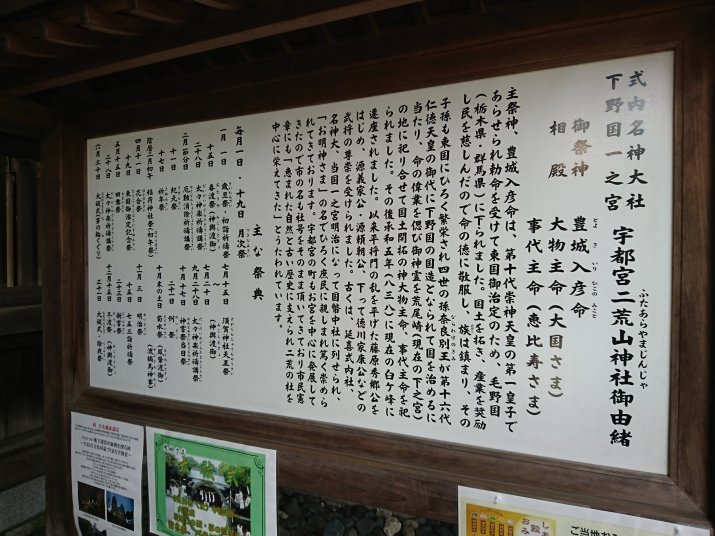 式内名神大社
下野国一之宮
宇都宮二荒山神社御由緒
ふたあらやまじんじゃ
御祭神 豊城入彦命
とよ き いり ひこの みこと
相殿 大物主命(大国さま)
事代主命(恵比寿さま)
主祭神、豊城入彦命は、第十代崇神天皇の第一皇子で
あらせられ勅命を受けて東国御治定のため、毛野国
(栃木県・群馬県)に下られました。国土を拓き、産業を奨励
し民を慈しんだので命の徳に敬服し、族は鎮まり、その
子孫も東国にひろく繁栄され四世の孫奈良別王が第十六代
仁徳天皇の御代に下野国の国造となられて国を治めるに
当たり、命の偉業を偲び御神霊を荒尾崎(現在の下之宮)
の地に祀り合せて国土開拓の神大物主命、事代主命を祀
られました。その後承和五年(八三八)に現在の臼ケ峰に
遷座されました。以来平将門の乱を平げた藤原秀郷公を
はじめ、源義家公・源頼朝公、下って徳川家康公などの
武将の尊崇を受けられました。古くは、延喜式内社、
名神大、当国一之宮明治になって国幣中社に列せられ、
「お明神さま」の名でひろく庶民に親しまれ篤く崇めら
れてきております。宇都宮の町もお宮を中心に発展して
きたので市の名も社号をそのまま頂いてきており市民憲
章にも「恵まれた自然と古い歴史に支えられ二荒の杜を
中心に栄えてきた」とうたわれています。
主な祭典
毎月一日・十九日 月次祭
一月一日 歳旦祭・初詣祈祷祭
十五日 春渡祭(神輿渡御)
二十八日 太々神楽祈祷講祭
二月節分 厄難消除祈祷祭
十一日 紀元祭
十七日 祈年祭
陰暦二月初午 稲荷神社祭(初午祭)
四月十一日 花会祭
十九日 東国御治定記念祭
五月十五日 田舞祭
二十八日 太々神楽祈祷講祭
六月三十日 大祓式(茅の輪くぐり)
七月十五日 須賀神社天王祭
七月二十日 (神輿渡御)
二十一日 例祭
十月末の土日 菊水祭
十一月三日 明治祭
十五日 七五三詣祈祷祭
二十三日 新嘗祭
十二月十五日 冬渡祭(神輿渡御)
三十一日 大祓式、除夜祭